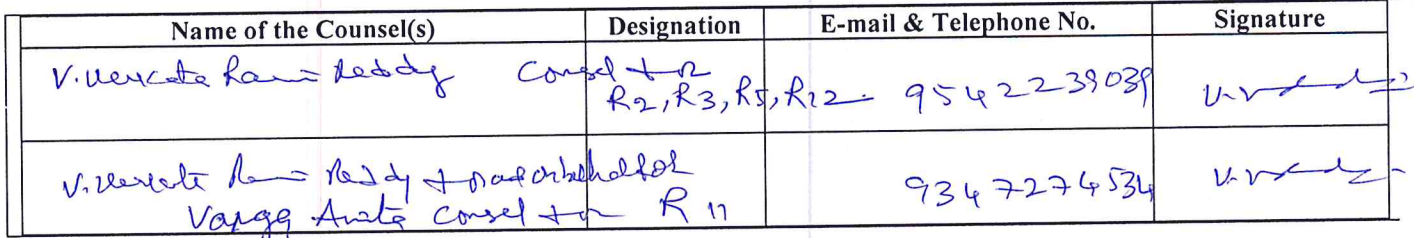 Name of the Counsel(s) Designation E-mail & Telephone No. Signature
V. Venkata Rami Reddy Counsel for
R2, R3, R5, R12. 9542239039
V. Venkata Rami Reddy
9347274534
Anita Counsel for R 11